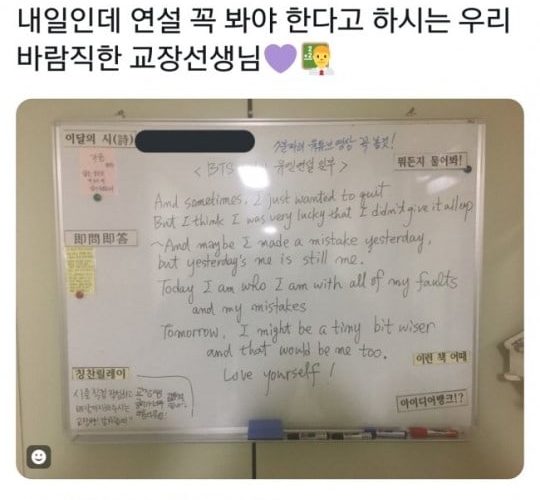 내일인데 연설 꼭 봐야 한다고 하시는 우리
바람직한 교장선생님💜👨‍🏫
이달의 시(詩)
7분짜리 유튜브 영상 꼭 볼것!
뭐든지 물어봐!
< BTS 유엔연설 일부 >
And sometimes, I just wanted to quit
But I think I was very lucky that I didn't give it all up
And maybe I made a mistake yesterday,
but yesterday's me is still me.
卽問卽答
Today I am who I am with all of my faults
and my mistakes
Tomorrow, I might be a tiny bit wiser
and that would be me too.
Love yourself!
이런 책 어때
칭찬릴레이
시를 직접
교장쌤! 감사합니다
아이디어뱅크!?